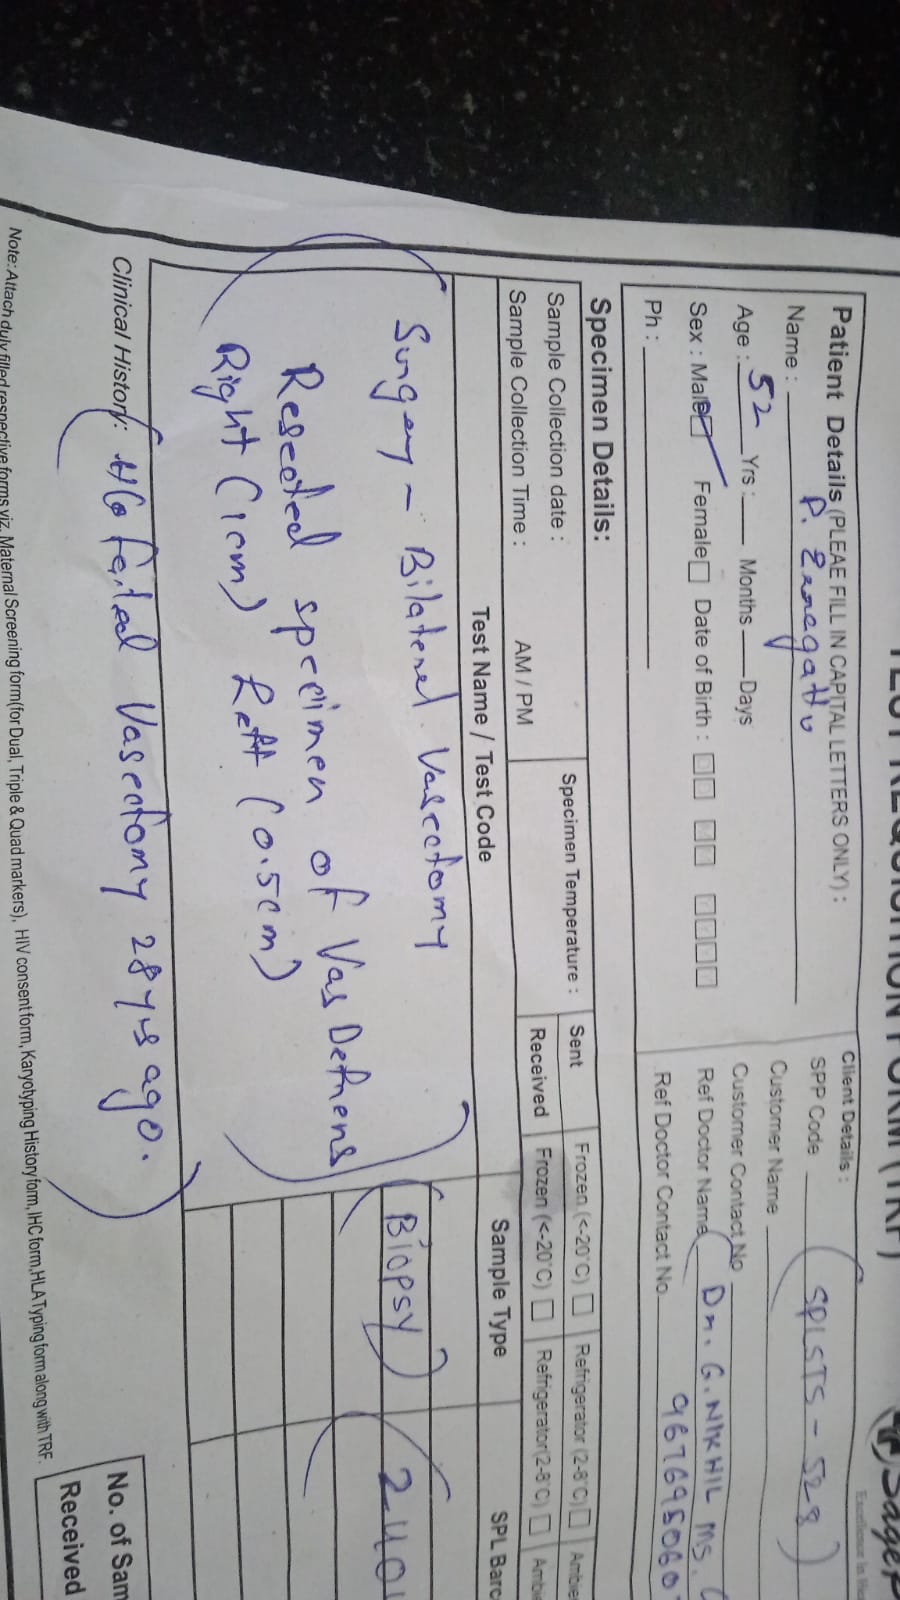 TEST REQUISITION FORM (TRF)
Sage
Excellence in
Patient Details (PLEAE FILL IN CAPITAL LETTERS ONLY) :
Name : P.
Age : 52 Yrs : Months Days
Sex : Male Female Date of Birth :
Ph :
Client Details :
SPP Code SPLSTS - 528
Customer Name
Customer Contact No
Ref Doctor Name Dr. G. NIKHIL MS.
Ref Doctor Contact No 967695060
Specimen Details:
Sample Collection date :
Sample Collection Time : AM / PM
Specimen Temperature :
Sent Frozen (<-20°C) Refrigerator (2-8°C) Ambie
Received Frozen (<-20°C) Refrigerator(2-8°C) Ambie
Test Name / Test Code Sample Type SPL Barc
Surgery - Bilateral Vasectomy Biopsy 2401
Resected specimen of Vas Deferens
Right (1cm) Left (0.5cm)
Clinical History: H/o failed Vasectomy 28 yrs ago.
Note: Attach duly filled respective forms viz. Maternal Screening form(for Dual, Triple & Quad markers), HIV consent form, Karyotyping History form, IHC form, HLA Typing form along with TRF.
No. of Sam
Received